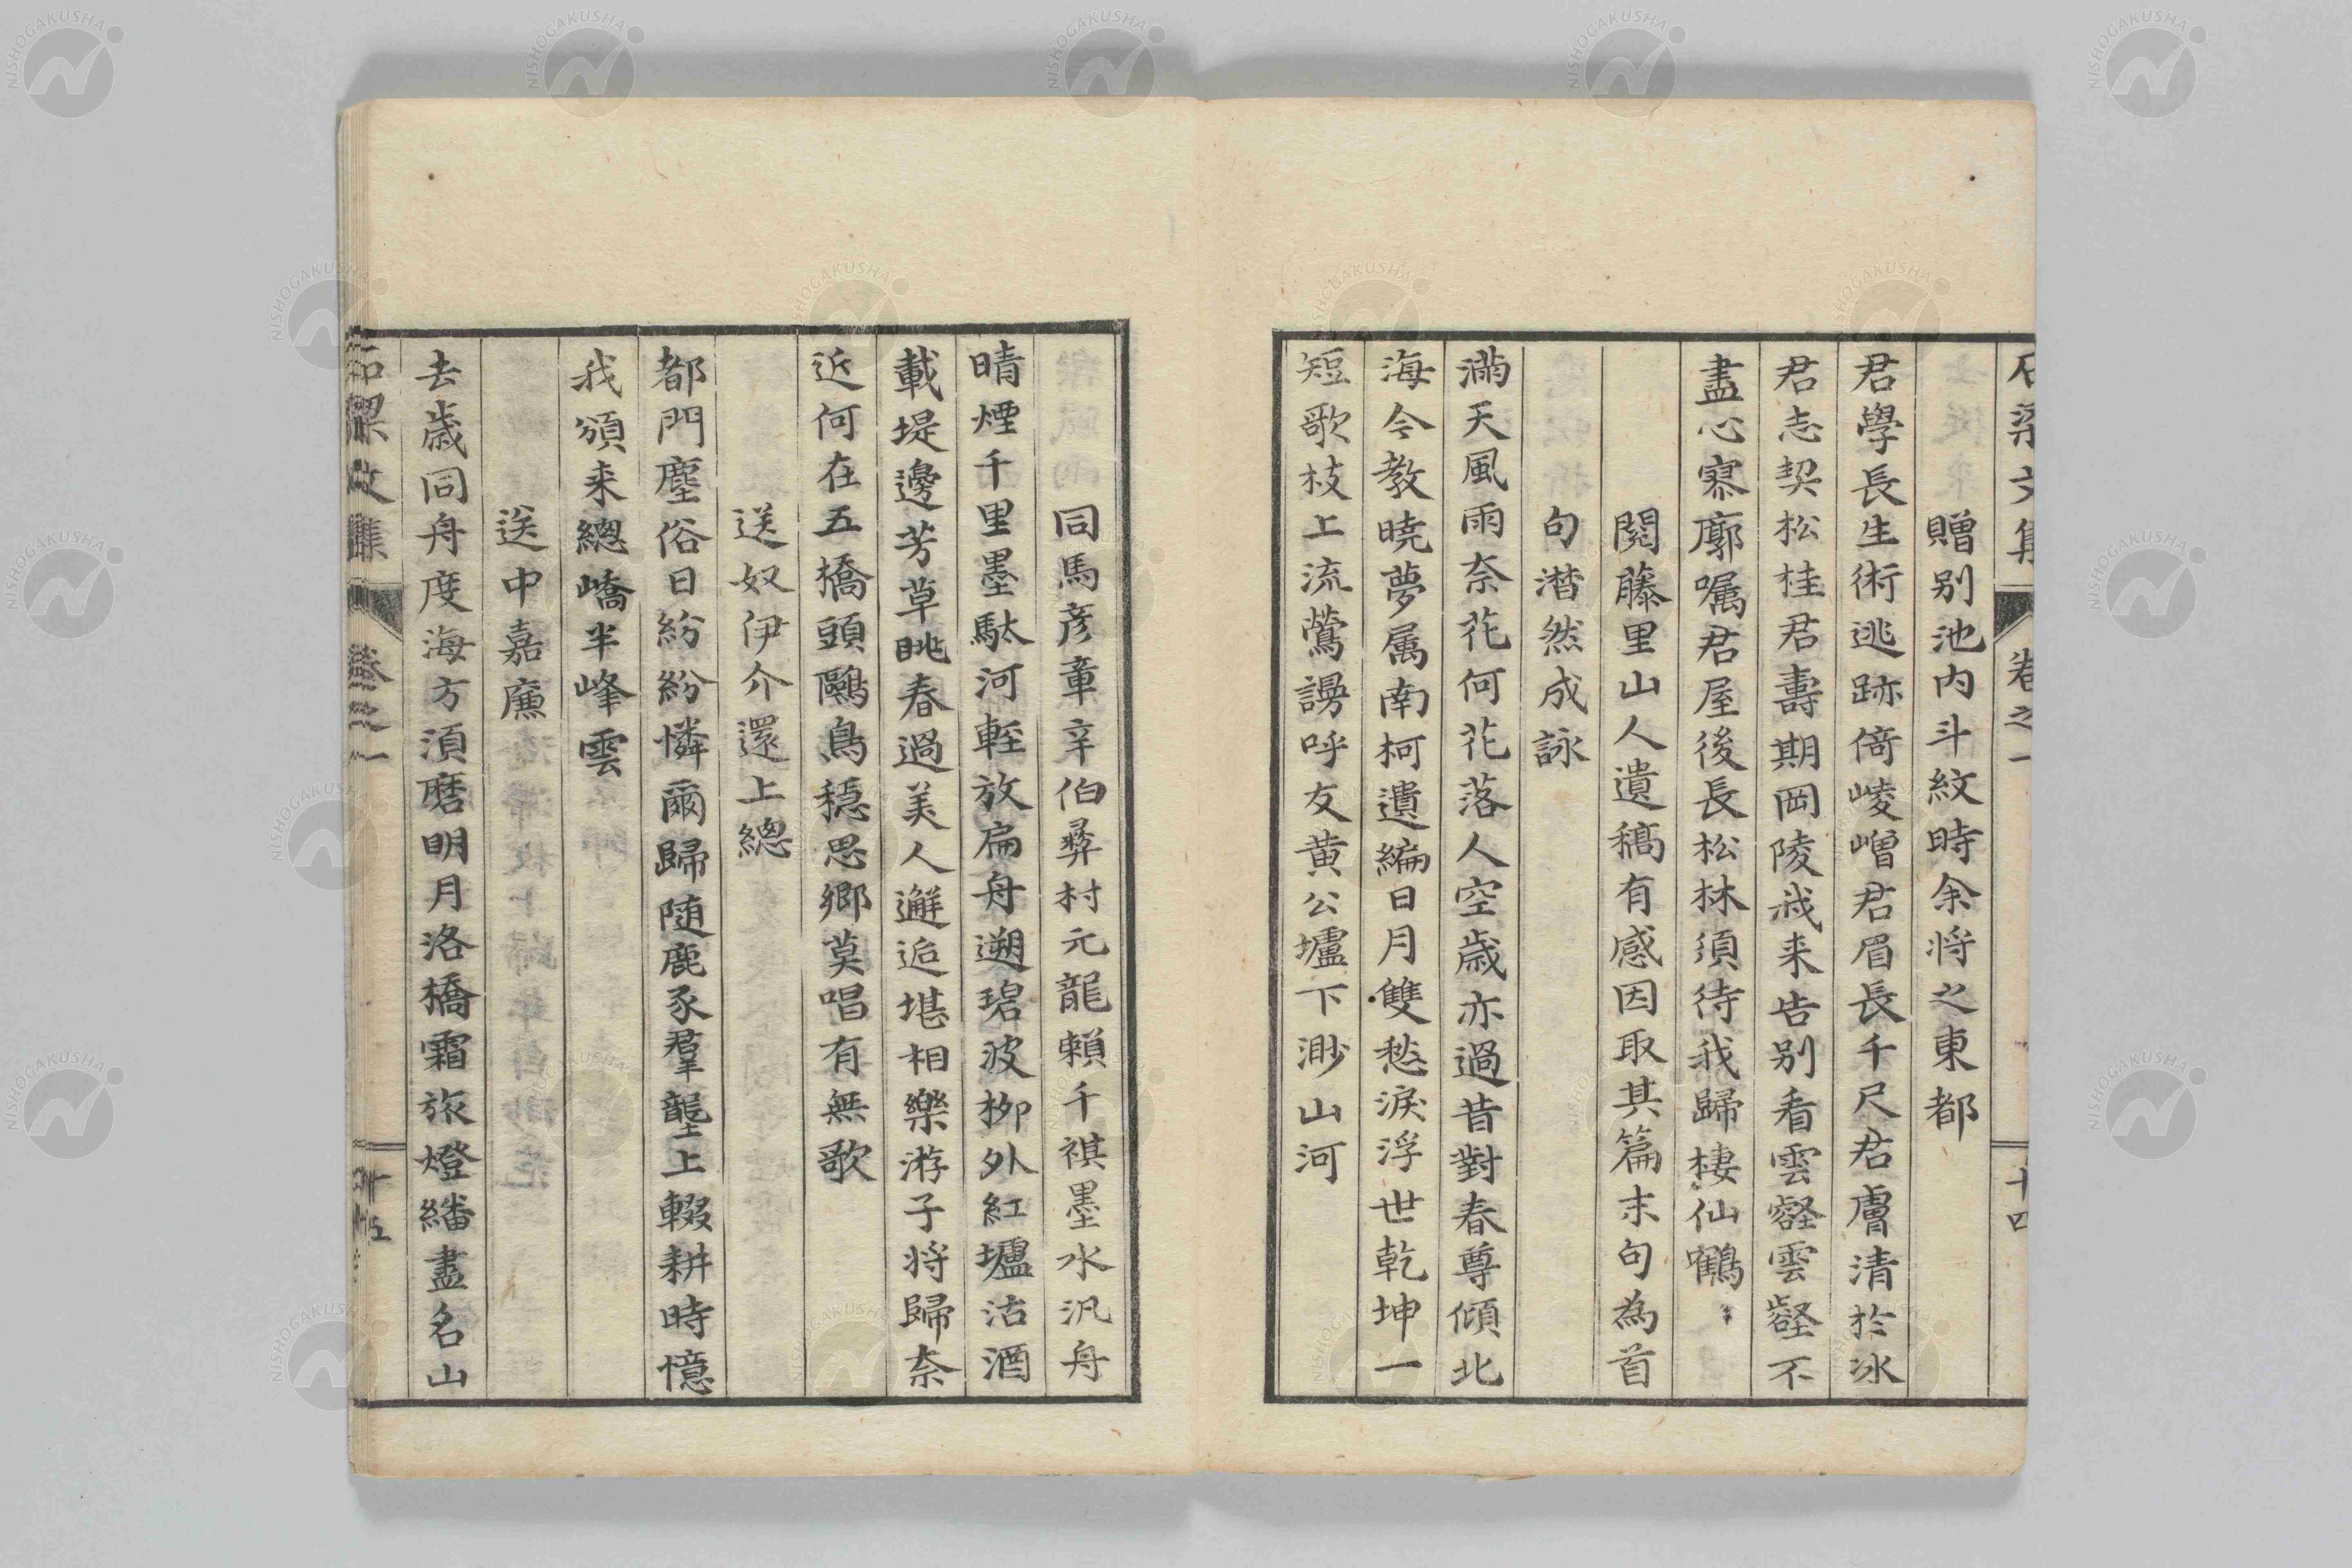 石梁文集 卷之一 十四
贈別池內斗紋時余将之東都
君學長生術逃跡倚崚嶒君眉長千尺君膚清於冰
君志契松桂君壽期岡陵我来告別看雲壑雲壑不
盡心寥廓囑君屋後長松林須待我歸棲仙鶴
閱藤里山人遺稿有感因取其篇末句為首
句潸然成詠
滿天風雨奈花何花落人空歳亦過昔對春尊傾北
海今教曉夢属南柯遺編日月雙愁淚浮世乾坤一
短歌枝上流鶯謾呼友黄公壚下渺山河
同馬彦章辛伯彝村元龍賴千祺墨水汎舟
晴煙千里墨駄河輕放扁舟遡碧波柳外紅壚沽酒
載堤邊芳草眺春過美人邂逅堪相樂游子将歸奈
近何在五橋頭鷗鳥穏思鄉莫唱有無歌
送奴伊介還上總
都門塵俗日紛紛憐爾歸随鹿豕羣壟上輟耕時憶
我頒来總嶠半峰雲
送中嘉廉
去歳同舟度海方湏磨明月洛橋霜旅燈繙盡名山
石梁文集 卷之一 十五
NISHOGAKUSHA